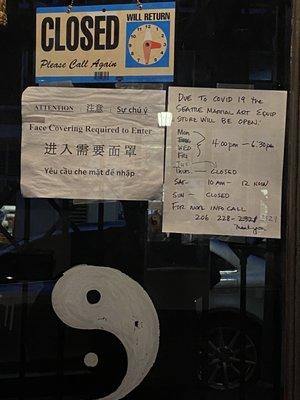 CLOSED
WILL RETURN
Please Call Again
ATTENTION 注意 Sự chú ý
Face Covering Required to Enter
进入需要面罩
Yêu cầu che mặt để nhập
DUE TO COVID 19 THE
SEATTLE MARTIAL ART EQUIP
STORE WILL BE OPEN.
MON
TUES
WED 4:00 PM - 6:30 PM
FRI
THUR. - CLOSED
SAT - 10 AM - 12 NOON
SUN - CLOSED
FOR MORE INFO CALL
206 228-
Thank you